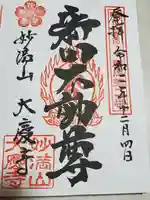 奉拝
令和二年十二月四日
不動尊
妙満山
大慶寺
妙満山
大慶寺